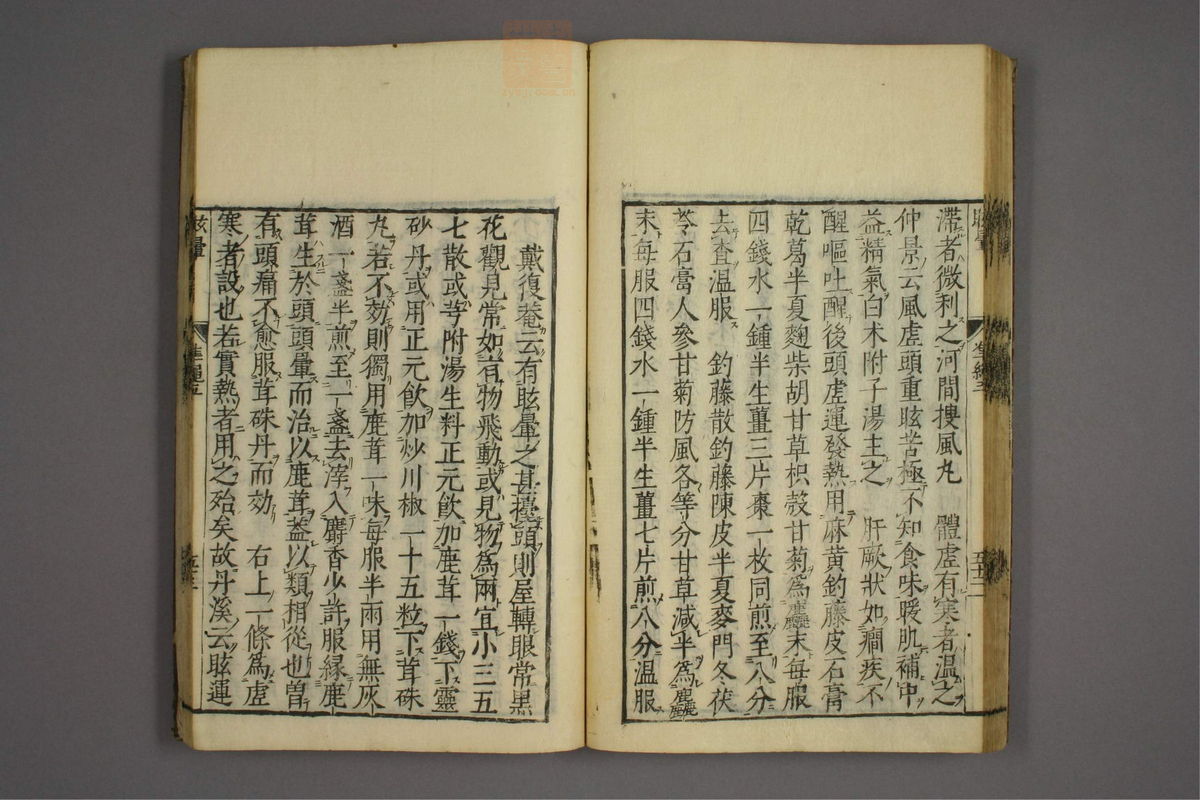 滯者微利之河間搜風丸　體虛有寒者溫之
仲景云風虛頭重眩苦極不知食味暖肌補中
益精氣白术附子湯主之　肝厥狀如癇疾不
醒嘔吐醒後頭虛運發熱用麻黃釣藤皮石膏
乾葛半夏麴柴胡甘草枳殼甘菊爲麤末每服
四錢水一鍾半生薑三片棗一枚同煎至八分
去查溫服　釣藤散釣藤陳皮半夏麥門冬茯
苓石膏人參甘菊防風各等分甘草減半爲麤
末每服四錢水一鍾半生薑七片煎八分溫服
戴復菴云有眩暈之甚擡頭則屋轉眼常黑
花觀見常如有物飛動或見物爲兩宜小三五
七散或芎附湯生料正元飮加鹿茸一錢下靈
砂丹或用正元飮加炒川椒一十五粒下茸硃
丸若不効則獨用鹿茸一味每服半兩用無灰
酒一盞半煎至一盞去滓入麝香少許服緣鹿
茸生於頭頭暈而治以鹿茸葢以類相從也曾
有頭痛不愈服茸硃丹而効　右上一條爲虛
寒者設也若實熱者用之殆矣故丹溪云眩運
眩暈